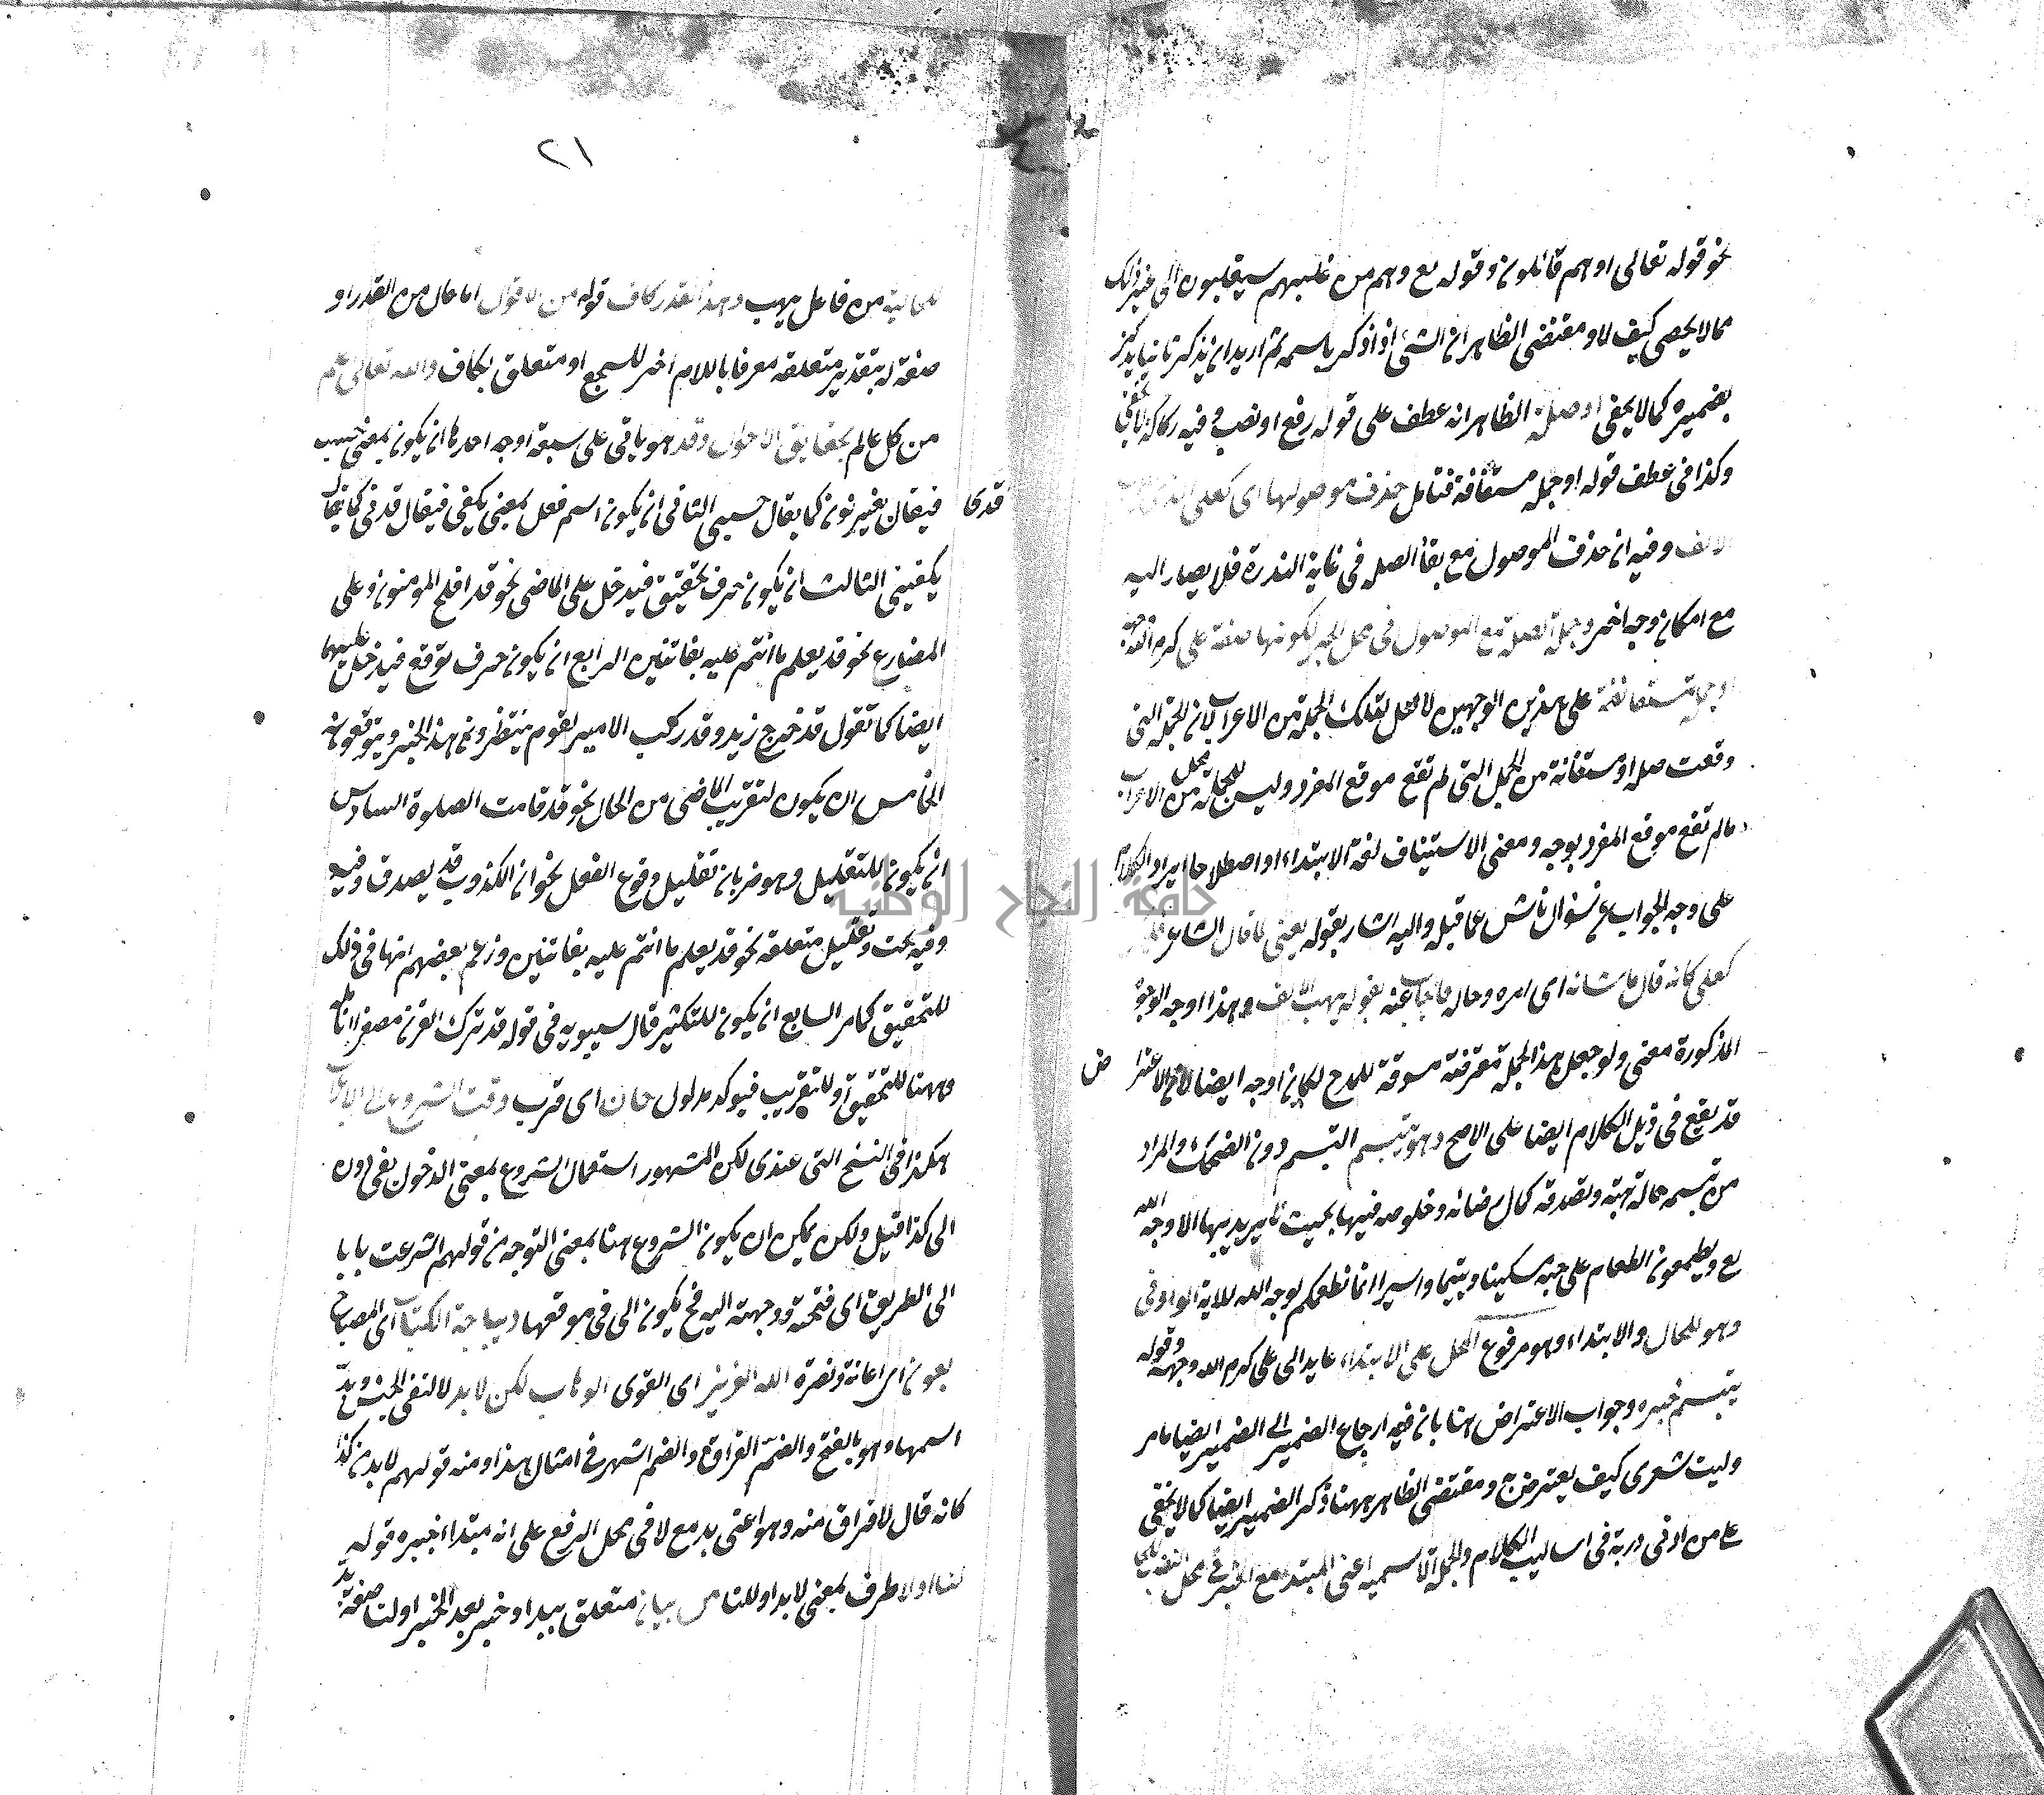 نحو قوله تعالى او هم قائلون و قوله تع وهم من بعد غلبهم سيغلبون الى غير ذلك
مما لا يحصى كيف لا و مقتضى الظاهر ان الشئ اذا ذكر باسمه ثم اريد ان يذكر ثانيا يذكر
بضميره كما لا يخفى او صلة الظاهر انه عطف على قوله رفع او نصب و فيه ركاكة لا يخفى
وكذا في عطف قوله او جملة مستأنفة فتأمل بحذف موصولها اى كعلى الذى
الالف وفيه ان حذف الموصول مع بقأ الصلة في غاية الندرة فلا يصار اليه
مع امكان وجه اخر وجملة الصلة مع الموصول في محل الجر لكونها صفة على كرم الله وجهه
او جملة مستأنفة على هذين الوجهين لا محل لتلك الجملة من الاعراب لان الجملة التي
وقعت صلة او مستأنفة من الجمل التي لم تقع موقع المفرد وليس للجملة محل من الاعراب
ما لم تقع موقع المفرد بوجه ومعنى الاستيناف لغة الابتداء او اصطلاحا ايراد الكلام
على وجه الجواب عن سؤال ناش عما قبله واليه اشار بقوله يعنى لما قال الشاعر
كعلى كانه قال ما شانه اى امره وحاله فاجاب عنه بقوله يهب الالف وهذا اوجه الوجوه
المذكورة معنى ولو جعل هذا الجملة معترضة مسوقة للمدح لكان اوجه ايضا لان الاعتراض
قد يقع في ذيل الكلام ايضا على الاصح وهو تبسم التبسم دون الضحك والمراد
من تبسمه حالة هبته وتصدقه كمال رضائه وخلوصه فيها بحيث لا يريد بها الا وجه الله
تع ويطعمون الطعام على حبه مسكينا ويتيما واسيرا انما نطعمكم لوجه الله للاية الواو في
وهو للحال والابتداء وهو مرفوع المحل على الابتداء عايد الى على كرم الله وجهه وقوله
يتبسم خبره وجواب الاعتراض هنا بان فيه ارجاع الضمير الى الضمير ايضا مامر
وليت شعرى كيف يعترض ومقتضى الظاهر ههنا ذكر الضمير ايضا كما لا يخفى
على من له ادنى دربة في اساليب الكلام والجملة الاسمية اعنى المبتدأ مع الخبر في محل النصب
٢١
للحالية من فاعل يهب وهذا القدر كاف قوله من لاقول اما حال من القدر او
صفة له بتقدير متعلقه معرفا باللام اخر للسجع او متعلق بكاف والله تعالى اعلم
من كل عالم بحقايق الاحوال وقد هو ياتى على سبعة اوجه احدها ان يكون بمعنى حسب
فيقال قدى بغير نون كما يقال حسبى الثانى ان يكون اسم فعل بمعنى يكفى فيقال قدنى كما يقال
يكفينى الثالث ان يكون حرف تحقيق فيدخل على الماضى نحو قد افلح المومنون وعلى
المضارع نحو قد يعلم ما انتم عليه بفاتنين الرابع ان يكون حرف توقع فيدخل عليهما
ايضا كما تقول قد خرج زيد وقد ركب الامير لقوم ينتظرون هذا الخبر ويتوقعونه
الخامس ان يكون لتقريب الماضى من الحال نحو قد قامت الصلوة السادس
ان يكون للتقليل وهو ضربان تقليل وقوع الفعل نحو ان الكذوب قد يصدق وفيه
وفيه بحث وتقليل متعلقه نحو قد يعلم ما انتم عليه بفاتنين وزعم بعضهم انها في ذلك
للتحقيق كما مر السابع ان يكون للتكثير قال سيبويه في قوله قد نترك القرن مصفرا انامله
وههنا للتحقيق او للتقريب فيوكد مدلول حان اى قرب وقت الشروع الى الابواب
هكذا في النسخ التى عندى لكن المشهور استعمال الشروع بمعنى الدخول بفى دون
الى كذا قيل ولكن يمكن ان يكون الشروع هنا بمعنى التوجه من قولهم اشرعت بابا
الى الطريق اى فتحته ووجهته اليه فح يكون الى في موقعها ديباجة الكتاب اى المصباح
بعون اى اعانة ونصرة الله العزيز اى القوى الوهاب لكن لا بد لا لنفى الجنس وبد
اسمها وهو بالفتح والضم الفراق والضم اشهر في امثال هذا ومنه قولهم لا بد من كذا
كانه قال لا فراق منه وهو اعنى بد مع لا في محل الرفع على انه مبتداء خبره قوله
لنا اولا ظرف بمعنى لابد او للناس بيان متعلق ببد او خبر بعد الخبر او لنا صفة بد
جامعة النجاح الوطنية